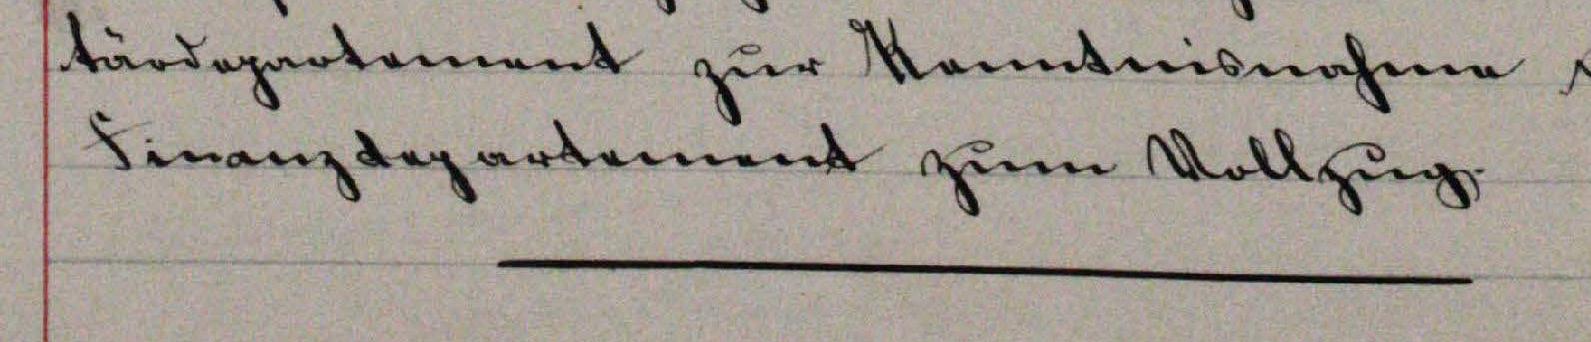 tärdepartement zur Kenntnisnahme
Finanzdepartement zum Vollzug.